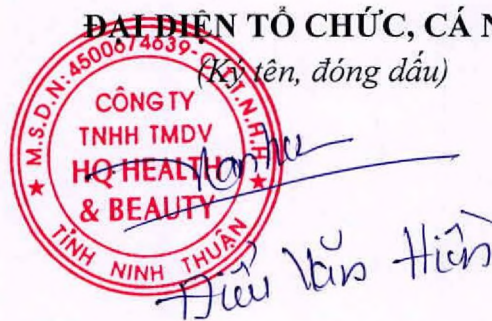 ĐẠI DIỆN TỔ CHỨC, CÁ N
(Ký tên, đóng dấu)
M.S.D.N: 4500674639-
T.N.H.H
CÔNG TY
TNHH TMDV
HQ HEALTH
& BEAUTY
TỈNH NINH THUẬN
Điểu Văn Hiền